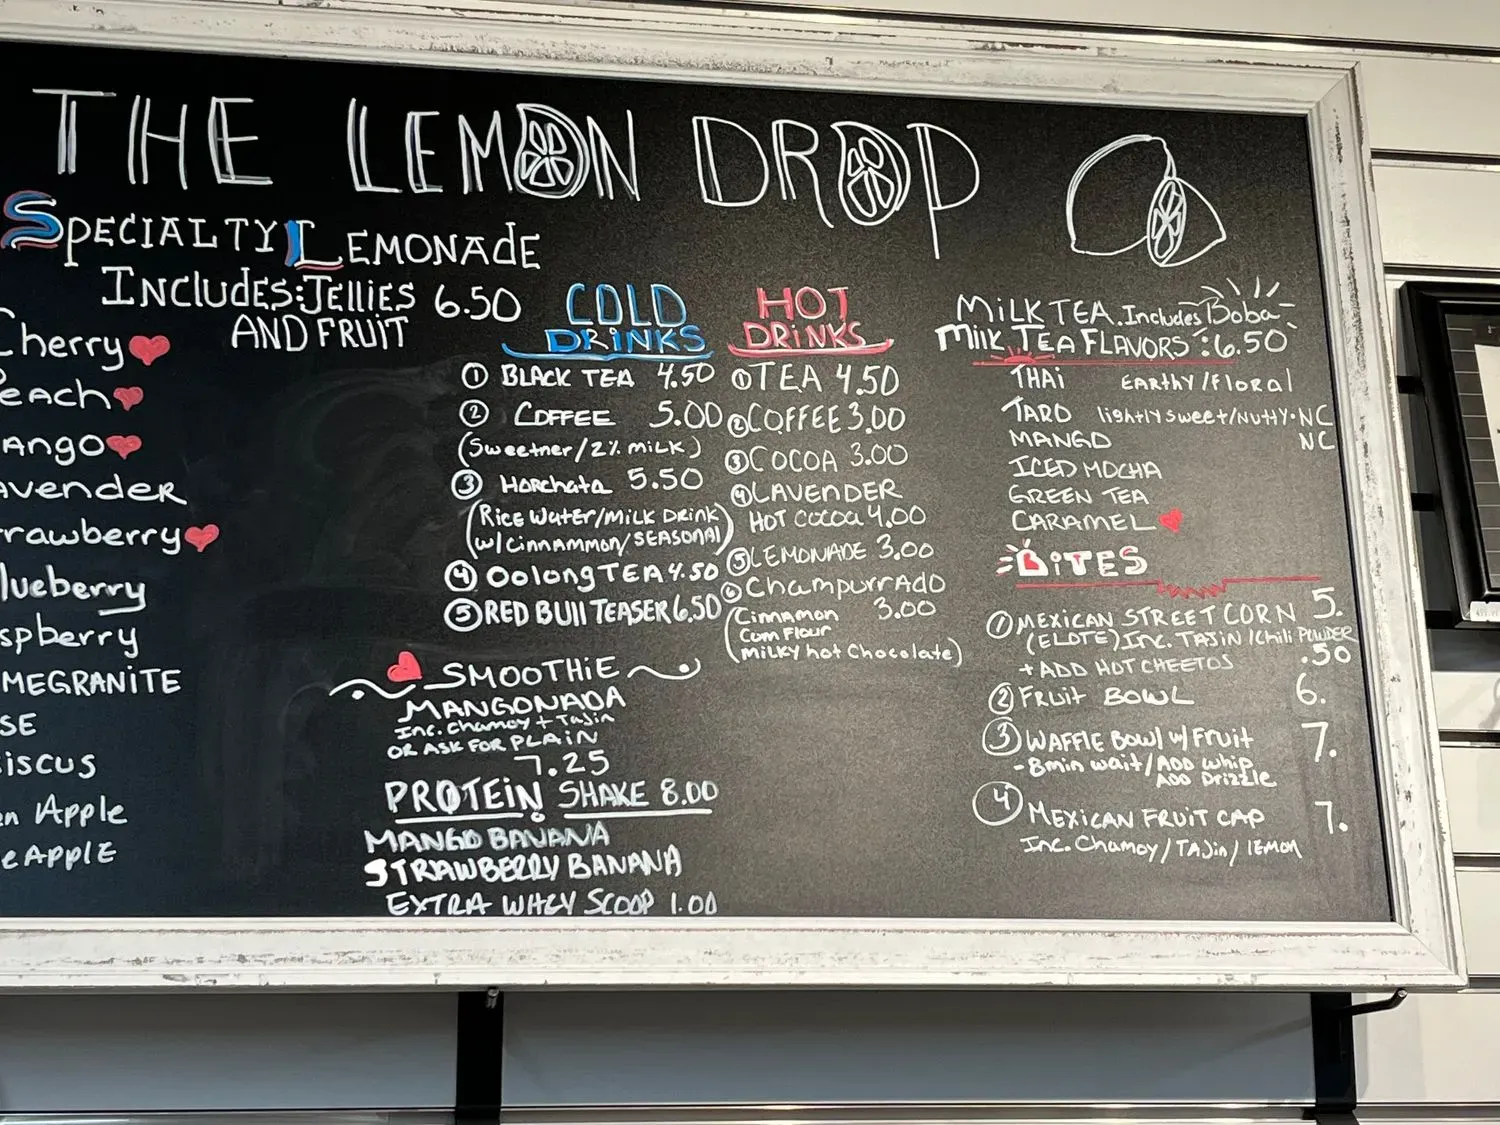 THE LEMON DROP
SPECIALTY LEMONADE
INCLUDES: JELLIES 6.50
AND FRUIT
Cherry
each
ango
avender
rawberry
lueberry
spberry
MEGRANITE
SE
iscus
en Apple
eAPPLE
COLD
DRINKS
① BLACK TEA 4.50
② COFFEE 5.00
(Sweetner/2% MILK)
③ Horchata 5.50
(Rice Water/Milk Drink
w/Cinnammon/SEASONAL)
④ Oolong TEA 4.50
⑤ RED BUll TEASER 6.50
SMOOTHiE
MANGONADA
Inc. Chamoy + Tajin
OR ASK FOR PLAIN
7.25
PROTEIN SHAKE 8.00
MANGO BANANA
STRAWBERRY BANANA
EXTRA WHEY SCOOP 1.00
HOT
DRINKS
① TEA 4.50
② COFFEE 3.00
③ COCOA 3.00
④ LAVENDER
HOT COCOA 4.00
⑤ LEMONADE 3.00
⑥ ChampurrADO
(Cinnamon 3.00
Corn Flour
MILKY hot Chocolate)
MILK TEA. Includes Boba
Milk TEA FLAVORS: 6.50
THAi EARthy/Floral
TARO lightly sweet/Nutty • NC
MANGO NC
ICED MOCHA
GREEN TEA
CARAMEL
BITES
① MEXICAN STREET CORN 5.
(ELOTE) Inc. TAJIN/Chili POWDER
+ ADD HOT CHEETOS .50
② FRUIT BOWL 6.
③ WAFFLE BOWl w/ FRUIT 7.
- 8min wait/ADD Whip
ADD Drizzle
④ MEXICAN FRUIT CAP 7.
Inc. Chamoy/TAJin/LEMON